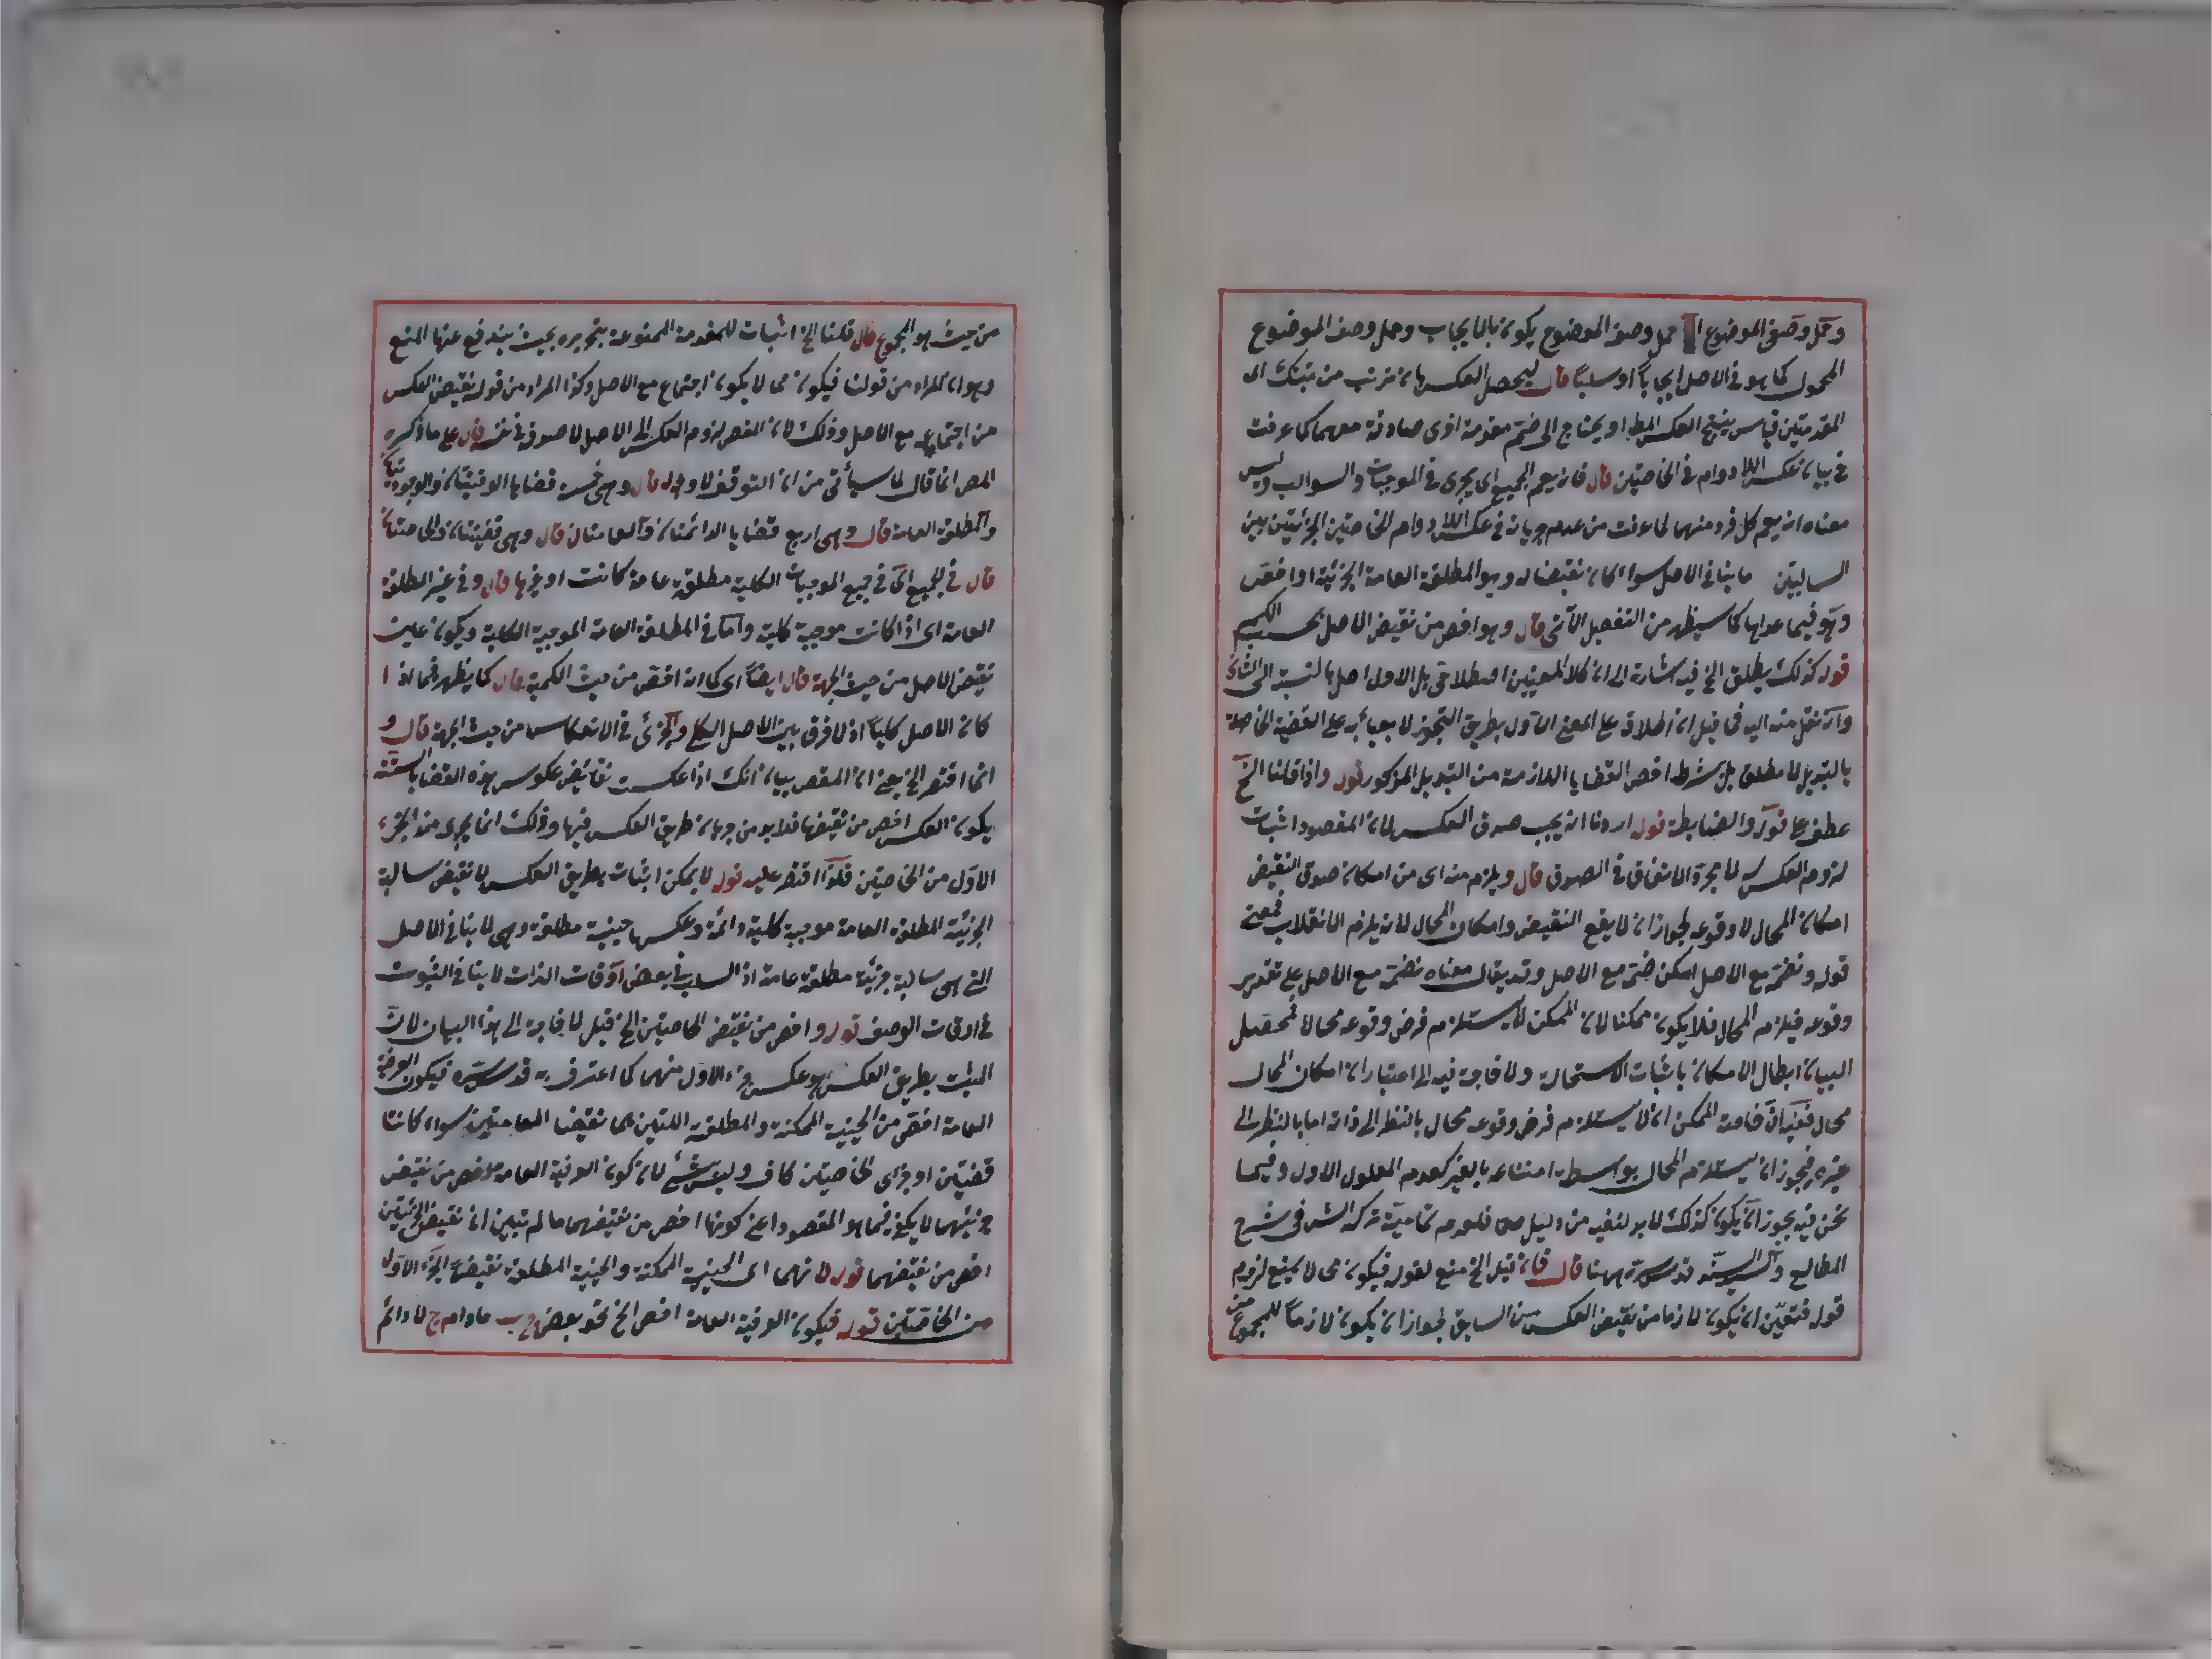 وحمل وصف الموضوع حمل وصف الموضوع يكون بالايجاب وحمل وصف الموضوع
المحمول كما هو فى الاصل ايجاباً او سلباً قال ليحصل العكس بان ترتب من تينك اى
المقدمتين قياس ينتج العكس المط او يحتاج الى ضم مقدمة اخرى صادقة معهما كما عرفت
فى بيان عكس اللادوام فى الخاصتين قال فانه يعم الجميع اى يجرى فى الموجبات والسوالب وليس
معناه انه يعم كل فرد منهما لما عرفت من عدم جريانه فى عكس اللادوام الخاصتين الجزئيتين بين
السالبتين ما ينافى الاصل سواء كان نقيضا له وهو المطلقة العامة الجزئية او اخص
وهو فيما عداها كما سيظهر من التفصيل الآتى قال وهو اخص من نقيض الاصل بحسب الكم
قوله كذلك يطلق الخ فيه اشارة الى ان كلا المعنيين اصطلاحى بل الاول اصل بالنسبة الى الثانى
وانه نقل منه اليه فما قيل ان اطلاق على المعنى الاول بطريق التجوز لا يعبأ به على القضية الحاصلة
بالتبديل لا مطلق بل بشرط اخص القضايا اللازمة من التبديل المذكور قوله واذا قلنا الخ
عطف على قوله والضابطة قوله اردنا انه يجب صدق العكس لان المقصود اثبات
لزوم العكس له لا مجرد الاتفاق فى الصدق قال ويلزم منه اى من امكان صدق النقيض
امكان المحال لا وقوعه لجواز ان لا يقع النقيض وامكان المحال محال لانه يلزم الانقلاب فمعنى
قوله ونضمه مع الاصل امكن ضمه مع الاصل وقد يقال معناه نضمه مع الاصل على تقدير
وقوعه فيلزم المحال فلا يكون ممكنا لان الممكن لا يستلزم فرض وقوعه محالا فمحصل
البيان ابطال الامكان باثبات الاستحالة ولا حاجة فيه الى اعتبار ان امكان المحال
محال ففيه ان خاصة الممكن ان لا يستلزم فرض وقوعه محال بالنظر الى ذاته اما بالنظر الى
غيره فيجوز ان يستلزم المحال بواسطة امتناعه بالغير كعدم المعلول الاول وفيما
نحن فيه يجوز ان يكون كذلك لا بد لنفيه من دليل فلعدم تماميته تركه الش فى شرح
المطالع والسيد قدس سره ههنا قال فان قيل الخ منع لقوله فيكون محالا يمنع لزوم
قوله فتعين ان يكون لازما من نقيض العكس من السابق لجواز ان يكون لازماً للمجموع من
من حيث هو المجموع قال قلنا الخ اثبات للمقدمة الممنوعة بتحريره بحيث يندفع عنها المنع
وهو ان المراد من قولنا فيكون محالا يكون اجتماع مع الاصل وكذا المراد من قوله نقيض العكس
من اجتماعه مع الاصل وذلك لان المقص لزوم العكس الى الاصل لا صدق فى نفسه قال على ما ذكره
المص انما قال لما سيأتى من ان التوقف لا وجه له قال وهى خمسة قضايا الوقتيتان والوجوديتان
والمطلقة العامة قال وهى اربع قضايا الدائمتان والعامتان قال وهى قضيتان والخاصتان
قال فى الجميع اى فى جميع الموجبات الكلية مطلقة عامة كانت او غيرها قال وفى غير المطلقة
العامة اى اذا كانت موجبة كلية واما فى المطلقة العامة الموجبة الكلية ويكون عين
نقيض الاصل من حيث الجهة قال ايضاً اى كما انه اخص من حيث الكمية قال كما يظهر فيما اذا
كان الاصل كلياً اذ لا فرق بين الاصل الكلى والجزئى فى الانعكاس من حيث الجهة قال و
انما اقتصر الخ يعنى ان المقصر بيان انك اذا عكست نقائض عكوس هذه القضايا الستة
يكون العكس اخص من نقيضها فلا بد من جريان طريق العكس فيها وذلك انما يجرى منه الجزء
الاول من الخاصتين فلو اقتصر عليه قوله لا يمكن اثبات بطريق العكس لان نقيض سالبة
الجزئية المطلقة العامة موجبة كلية دائمة وعكسها حينية مطلقة وهى لا ينافى الاصل
التى هى سالبة جزئية مطلقة عامة اذ السلب فى بعض اوقات الذات لا ينافى الثبوت
فى اوقات الوصف قوله واخص من نقيض الخاصتين الخ قيل لا حاجة الى هذا البيان لان
المثبت بطريق العكس هو عكس جزء الاول منهما كما اعترف به قدس سره فيكون العرفية
العامة اخص من الحينية الممكنة والمطلقة اللتين هما نقيضا العامتين سواء كانتا
قضيتين او جزأى الخاصتين كاف وليس بشئ لان كون العرفية العامة اخص من نقيض
جزئيهما لا يكفى فيما هو المقصود اعنى كونها اخص من نقيضهما ما لم تبين ان نقيض الجزئيتين
اخص من نقيضهما قوله لانهما اى الحينية الممكنة والحينية المطلقة نقيضا الجزء الاول
من الخاصتين قوله فيكون العرفية العامة اخص الخ نحو بعض ج ب ما دام ج لا دائم